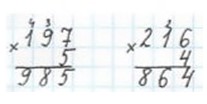 4 3 2
× 197 × 216
5 4
985 864